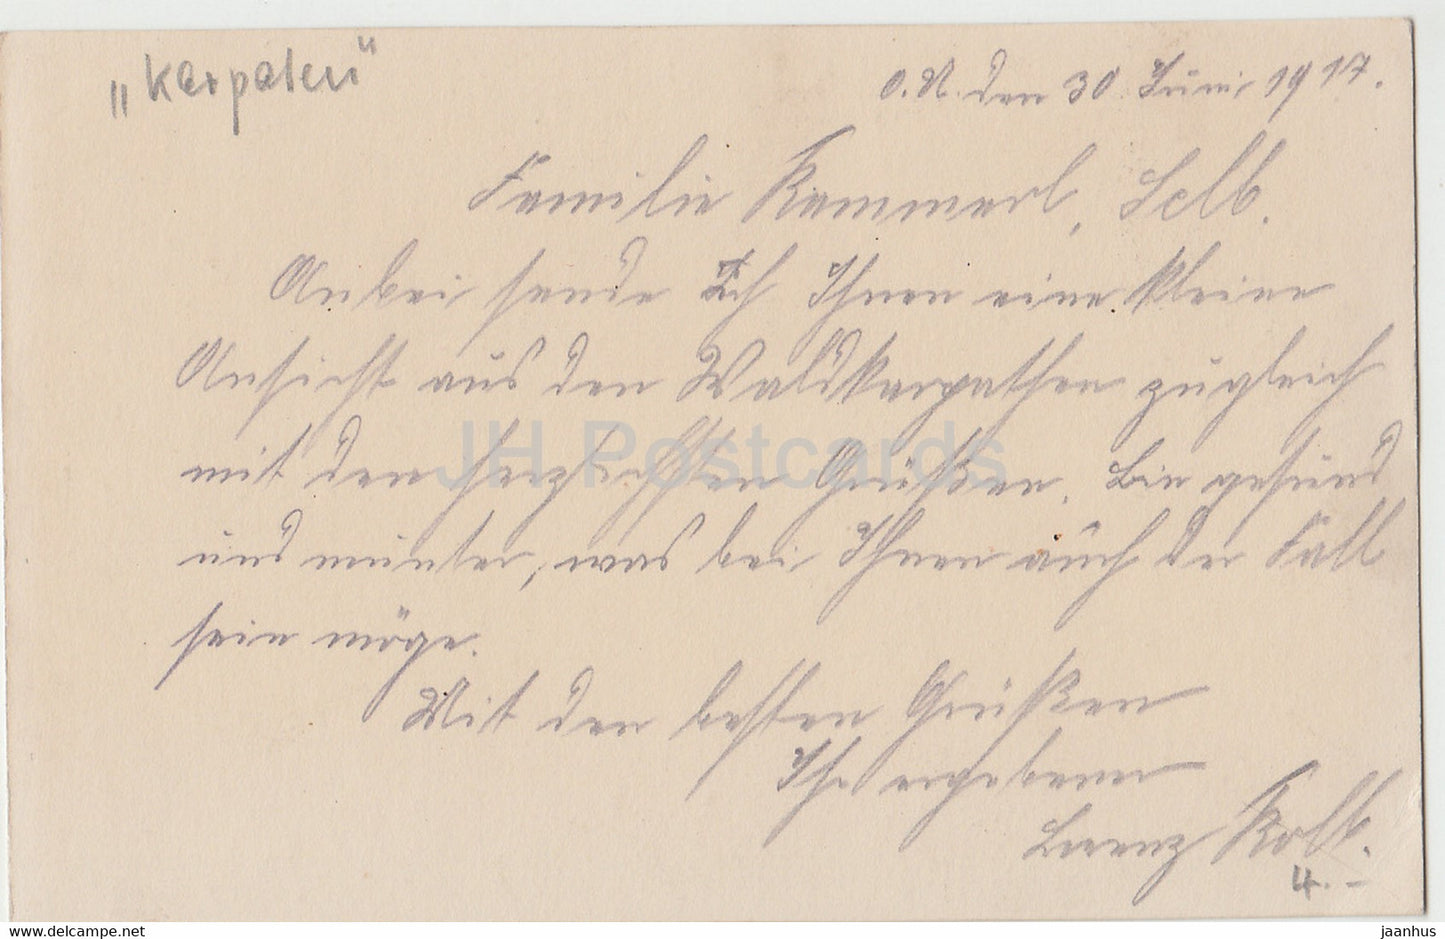 „Karpaten“
O.U. den 30. Juni 1917.
Familie Kammerl, Selb.
Anbei sende Ich Ihnen eine kleine
Ansicht aus den Waldkarpathen zugleich
mit den herzlichsten Grüßen. Bin gesund
und munter, was bei Ihnen auch der Fall
sein möge.
Mit den besten Grüßen
Ihr ergebener
Lorenz Kolb.
4.-
JH Postcards
delcampe.net
jaanhus